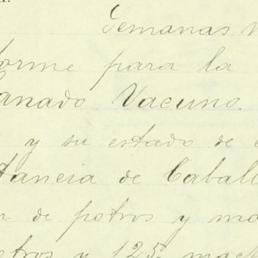 Semanas
orme para la
anado Vacuno.
y su estado de
tancia de Cabal
de potros y ma
tros y 125 mach